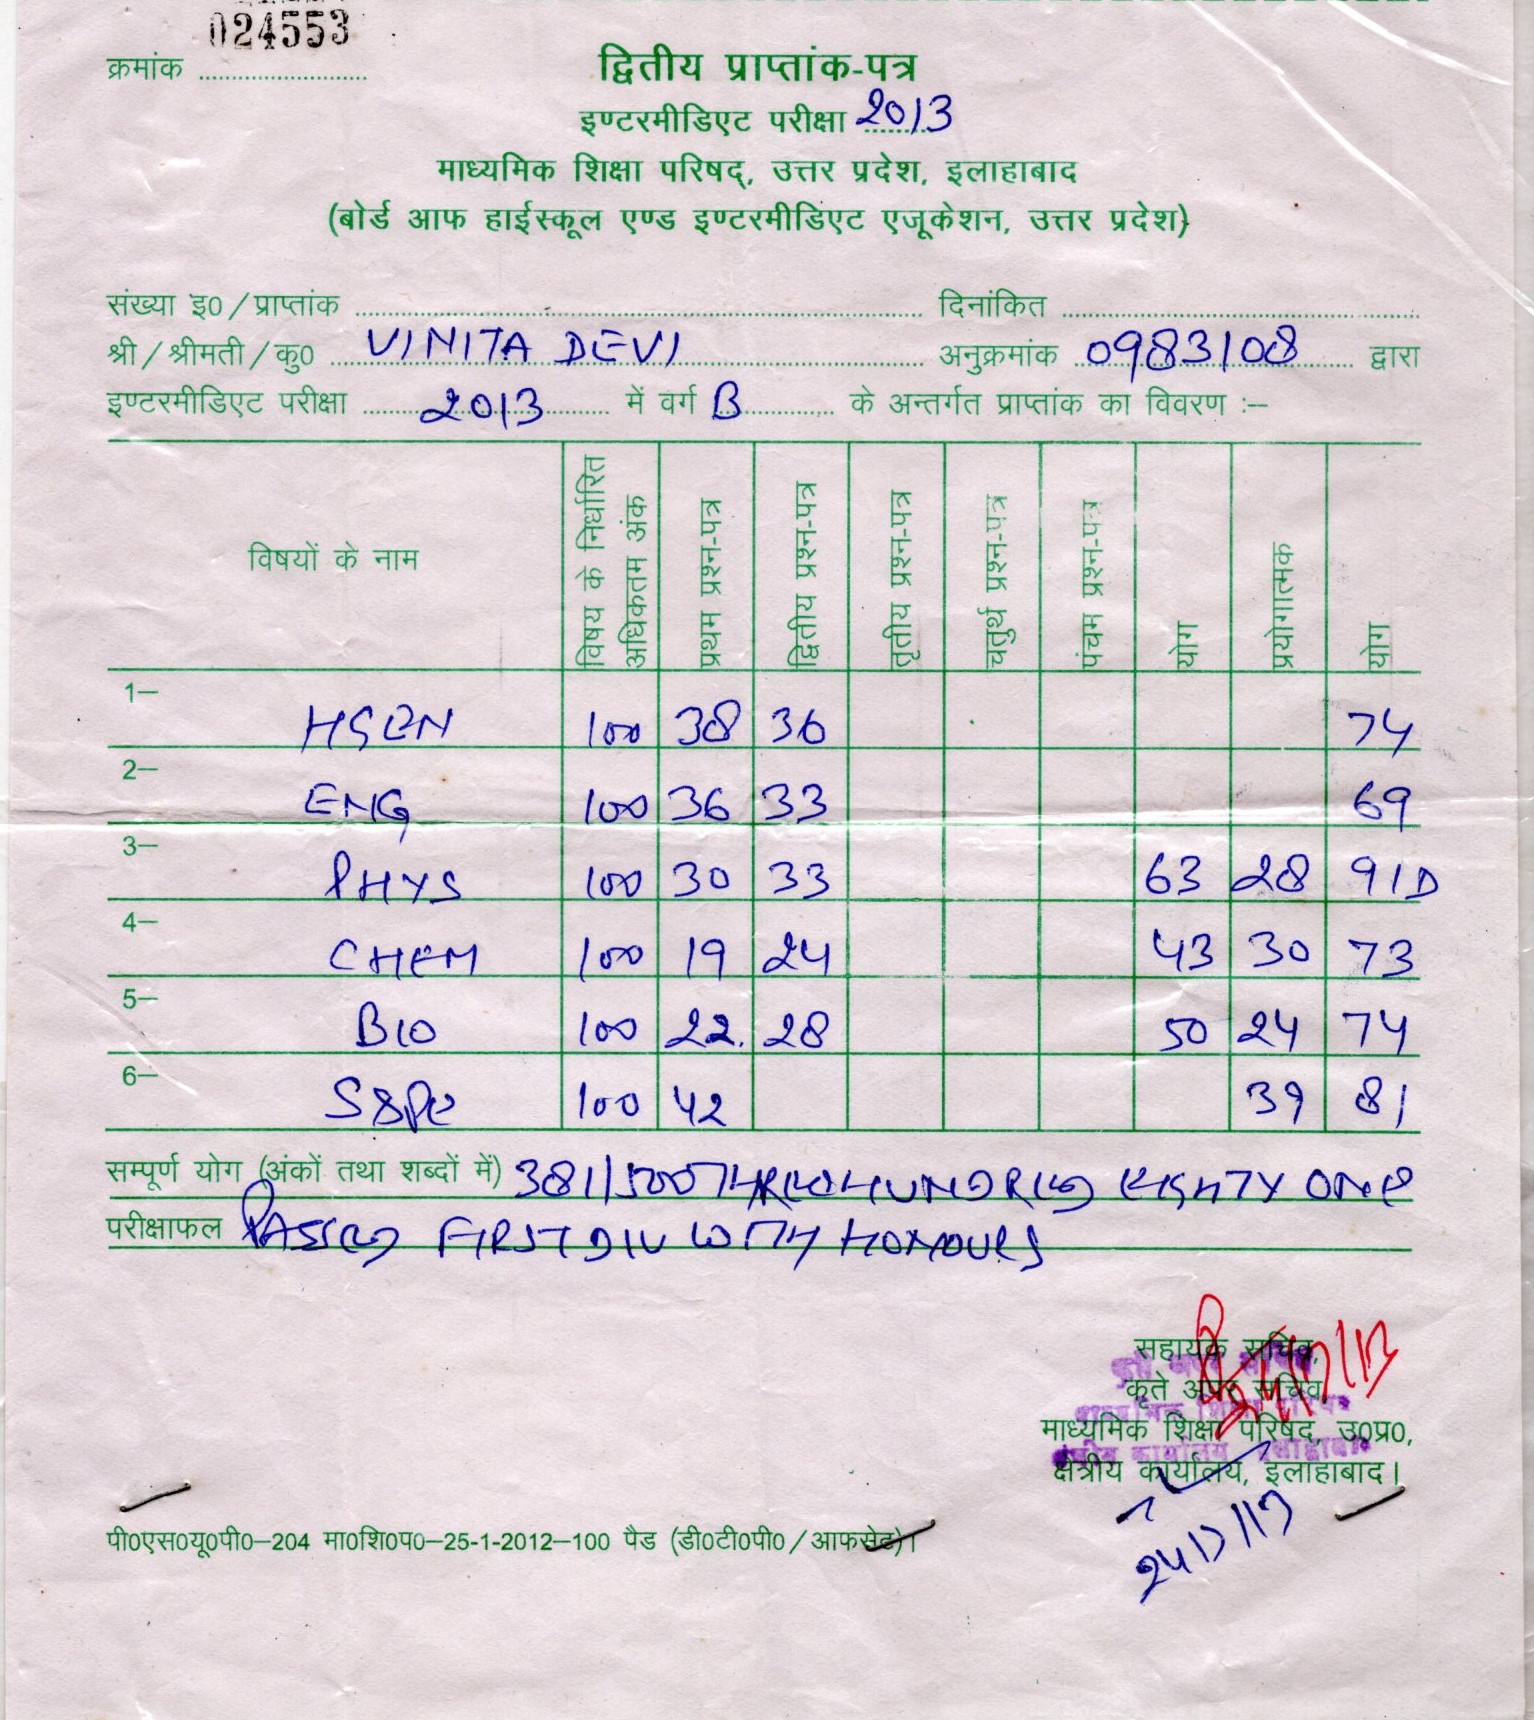 024553
क्रमांक
द्वितीय प्राप्तांक-पत्र
इण्टरमीडिएट परीक्षा 2013
माध्यमिक शिक्षा परिषद्, उत्तर प्रदेश, इलाहाबाद
(बोर्ड आफ हाईस्कूल एण्ड इण्टरमीडिएट एजूकेशन, उत्तर प्रदेश)
संख्या इ0/प्राप्तांक दिनांकित
श्री/श्रीमती/कु0 VINITA DEVI अनुक्रमांक 0983108 द्वारा
इण्टरमीडिएट परीक्षा 2013 में वर्ग B के अन्तर्गत प्राप्तांक का विवरण :–
विषयों के नाम विषय के निर्धारित अधिकतम अंक प्रथम प्रश्न-पत्र द्वितीय प्रश्न-पत्र तृतीय प्रश्न-पत्र चतुर्थ प्रश्न-पत्र पंचम प्रश्न-पत्र योग प्रयोगात्मक योग
1– HGEN 100 38 36 74
2– ENG 100 36 33 69
3– PHYS 100 30 33 63 28 91D
4– CHEM 100 19 24 43 30 73
5– BIO 100 22. 28 50 24 74
6– S&PE 100 42 39 81
सम्पूर्ण योग (अंकों तथा शब्दों में) 381/500 THREE HUNDRED EIGHTY ONE
परीक्षाफल PASSED FIRST DIV WITH HONOURS
सहायक सचिव,
कृते अपर सचिव
माध्यमिक शिक्षा परिषद, उ0प्र0,
क्षेत्रीय कार्यालय, इलाहाबाद।
पी0एस0यू0पी0–204 मा0शि0प0–25-1-2012–100 पैड (डी0टी0पी0/आफसेट)।